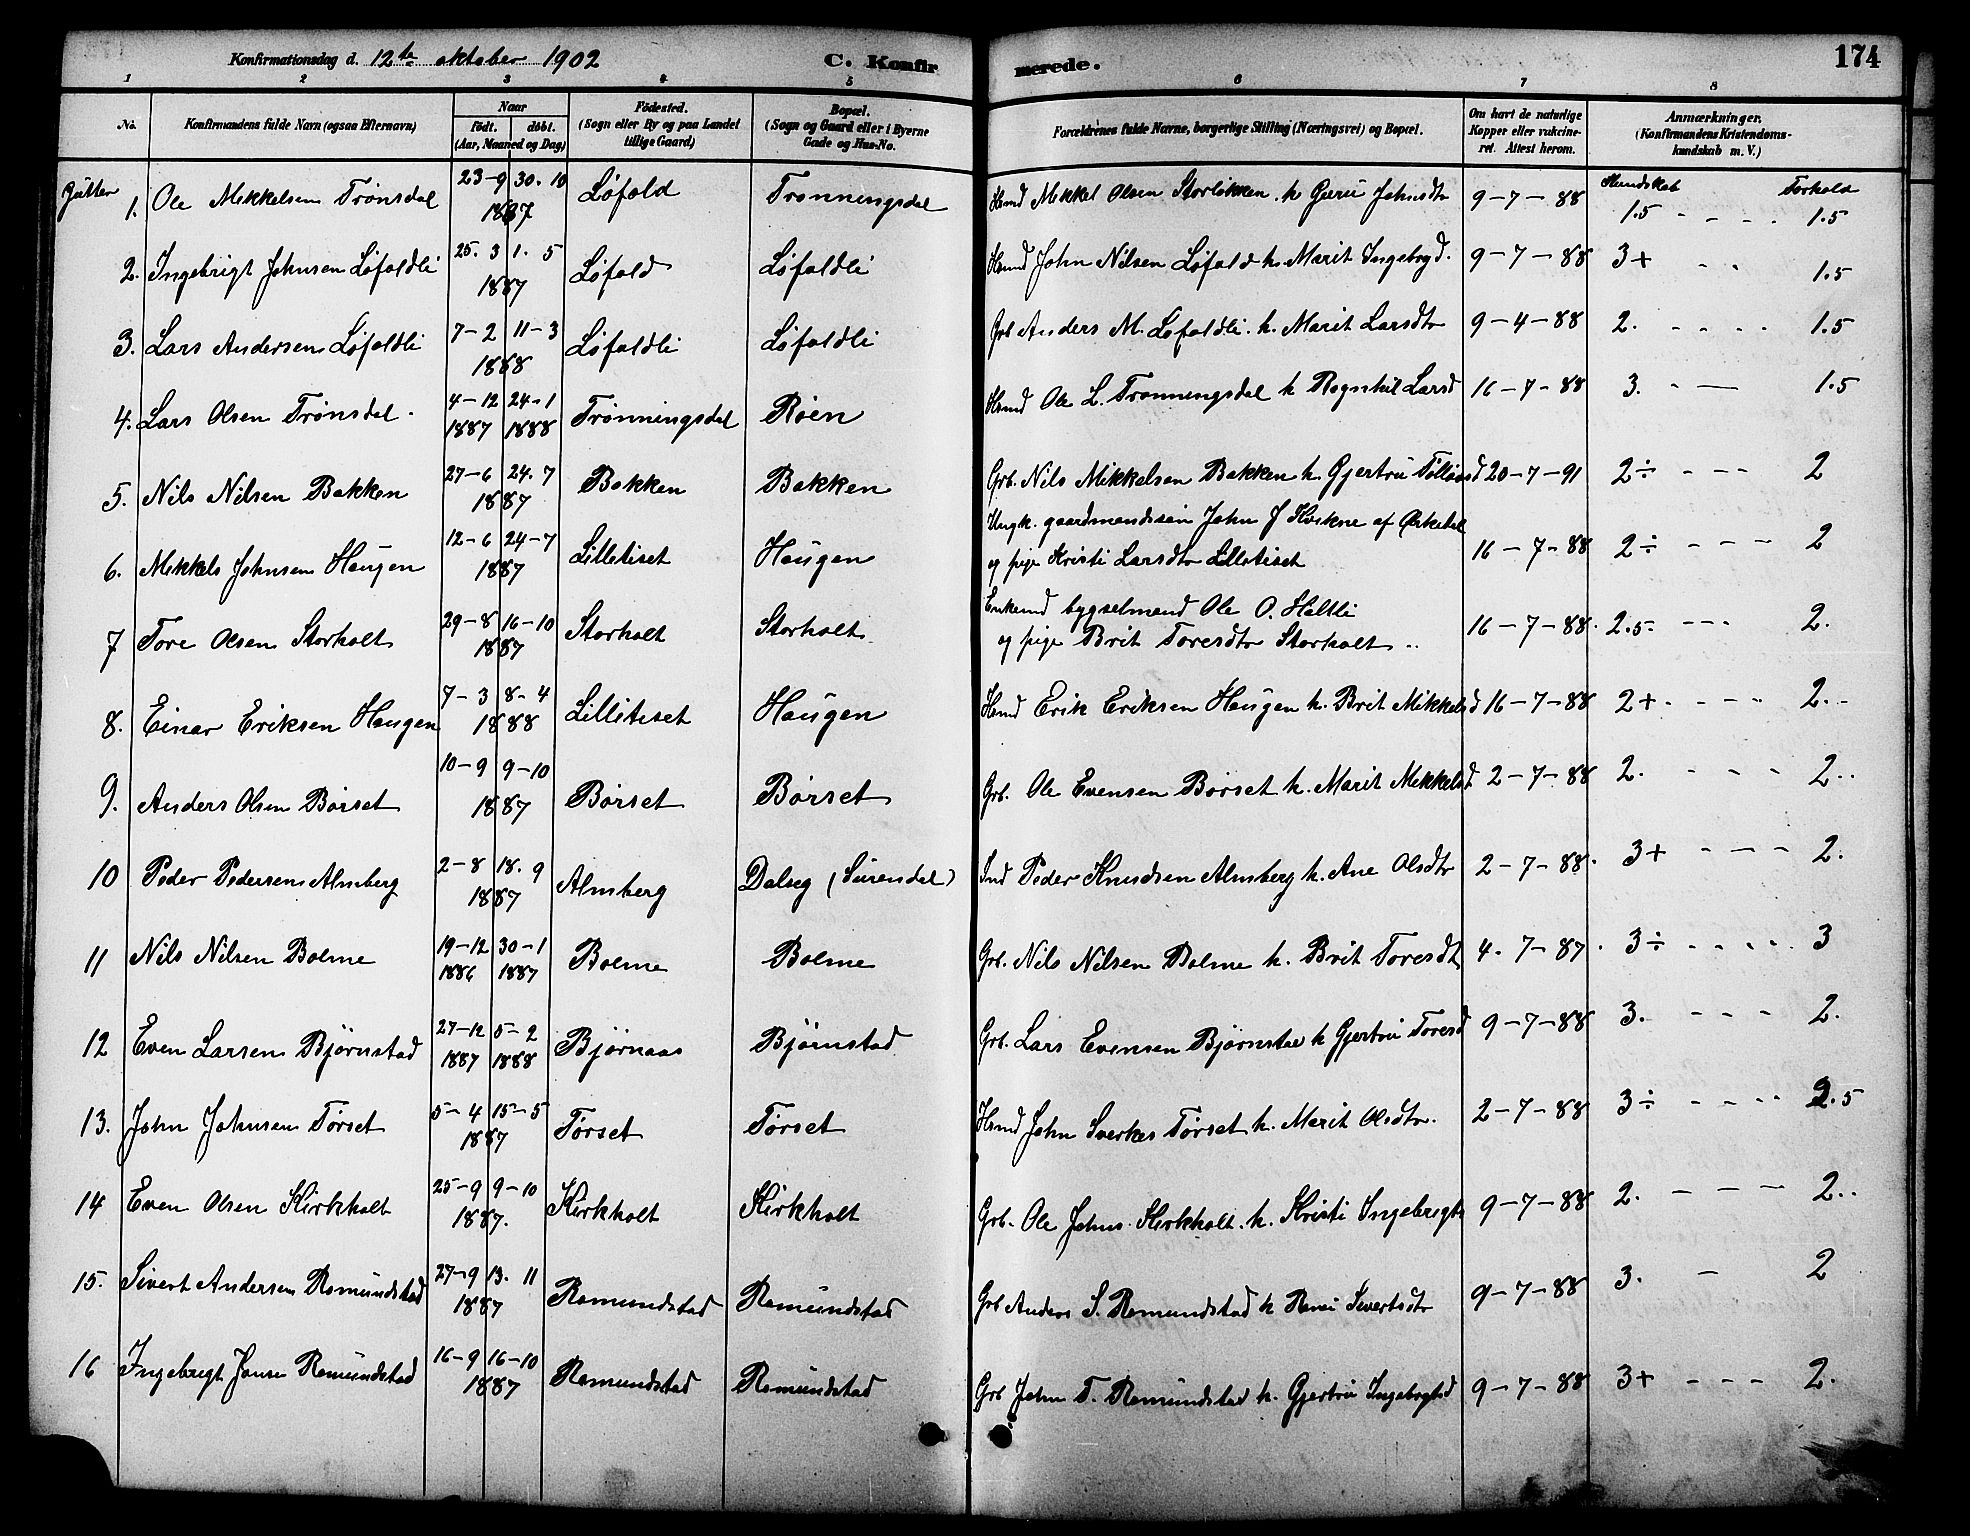 Konfirmationsdag d. 12te oktober 1902 C. Konfirmerede. 174
1 2 3 4 5 6 7 8
No. Konfirmandens fulde Navn (ogsaa Efternavn)
Naar født. døbt. (Aar, Maaned og Dag)
Fødested. (Sogn eller By og paa Landet tillige Gaard)
Bopæl. (Sogn og Gaard eller i Byerne Gade og Hus-No.
Forældrenes fulde Navne, borgerlige Stilling (Næringsvei) og Bopæl.
Om havt de naturlige Kopper eller vakcineret. Attest herom.
Anmærkninger. (Konfirmandens Kristendomskundskab m. V.)
Gutter Kundskab Forhold
1. Ole Mikkelsen Trønsdal 23-9 30.10 1887 Løfald Trønningsdal Hsmd Mikkel Olsen Storløkken h. Guru Johnsdtr 9-7-88 1.5 - - - - 1.5
2. Ingebrigt Johnsen Løfaldli 25.3 1.5 1887 Løfald Løfaldli Hsmd John Nilsen Løfald h. Marit Ingebrgd. 9-7-88 3+ - - 1.5
3. Lars Andersen Løfaldli 7-2 11-3 1888 Løfaldli Løfaldli Grb Anders M. Løfaldli h. Marit Larsdtr 9-4-88 2. - - - - 1.5
4. Lars Olsen Trønsdal. 4-12 1887 24-1 1888 Trønningsdal Røen Hsmd Ole L. Trønningsdal h Ragnhil Larsd 16-7-88 3. - — 1.5
5. Nils Nilsen Bakken 27-6 24.7 1887 Bakken Bakken Grb. Nils Mikkelsen Bakken h. Gjertru 20-7-91 2÷ - - - 2
6. Mikkel Johnsen Haugen 12-6 24-7 1887 Lilletiset Haugen Ungk. gaardmandssøn John J Kvikne af Ørkedal
og pige Kristi Larsdtr Lilletiset 16-7-88 2÷ - - - 2
7 Tore Olsen Storholt 29-8 16-10 1887 Storholt Storholt Enkemd bygselmand Ole O. Holtli
og pige Brit Toresdtr Storholt .. 16-7-88. 2.5 - - - 2.
8. Einar Eriksen Haugen 7-3 8-4 1888 Lilletiset Haugen Hsmd Erik Eriksen Haugen h. Brit Mikkelsd 16-7-88 2+. - - - 2..
9. Anders Olsen Børset 10-9 9-10 1887 Børset Børset Grb. Ole Evensen Børset h. Marit Mikkelsd. 2-7-88 2. - - - 2..
10 Peder Pedersen Almberg 2-8 18.9 1887 Almberg Dalseg (Surendal) Ind Peder Knudsen Almberg h. Ane Olsdtr 2-7-88. 3+ - - - - 2.
11 Nils Nilsen Bolme 19-12 1886 30-1 1887 Bolme Bolme Grb. Nils Nilsen Bolme h. Brit Toresdt 4.7-87. 3÷ - - - - 3
12 Even Larsen Bjørnstad 27-12 1887 5-2 1888 Bjørnaas Bjørnstad Grb. Lars Evensen Bjørnstad h Gjertru Toresd 9-7-88 3. - - - 2.
13. John Johnsen Tørset 5-4 15-5 1887 Tørset Tørset Hsmd John Sverkes Tørset h. Marit Olsdtr. 2-7-88 3÷ - - - - 2.5
14 Even Olsen Kirkholt 25-9 9-10 1887. Kirkholt Kirkholt Grb. Ole Johns. Kirkholt. h. Kristi Ingebrigts 9-7-88 2. - - - 2..
15. Sivert Andersen Romundstad 27-9 13.11 1887 Romundstad Romundstad Grb Anders S. Romundstad h Sivertsdtr 9-7-88 3. - 2
16 Ingebrigt Jonsen Romundstad 16-9 16-10 1887 Romundstad Romundstad Grb John T. Romundstad h. Gjertru Ingebrgtsd 9-7-88 3+ - - - 2.